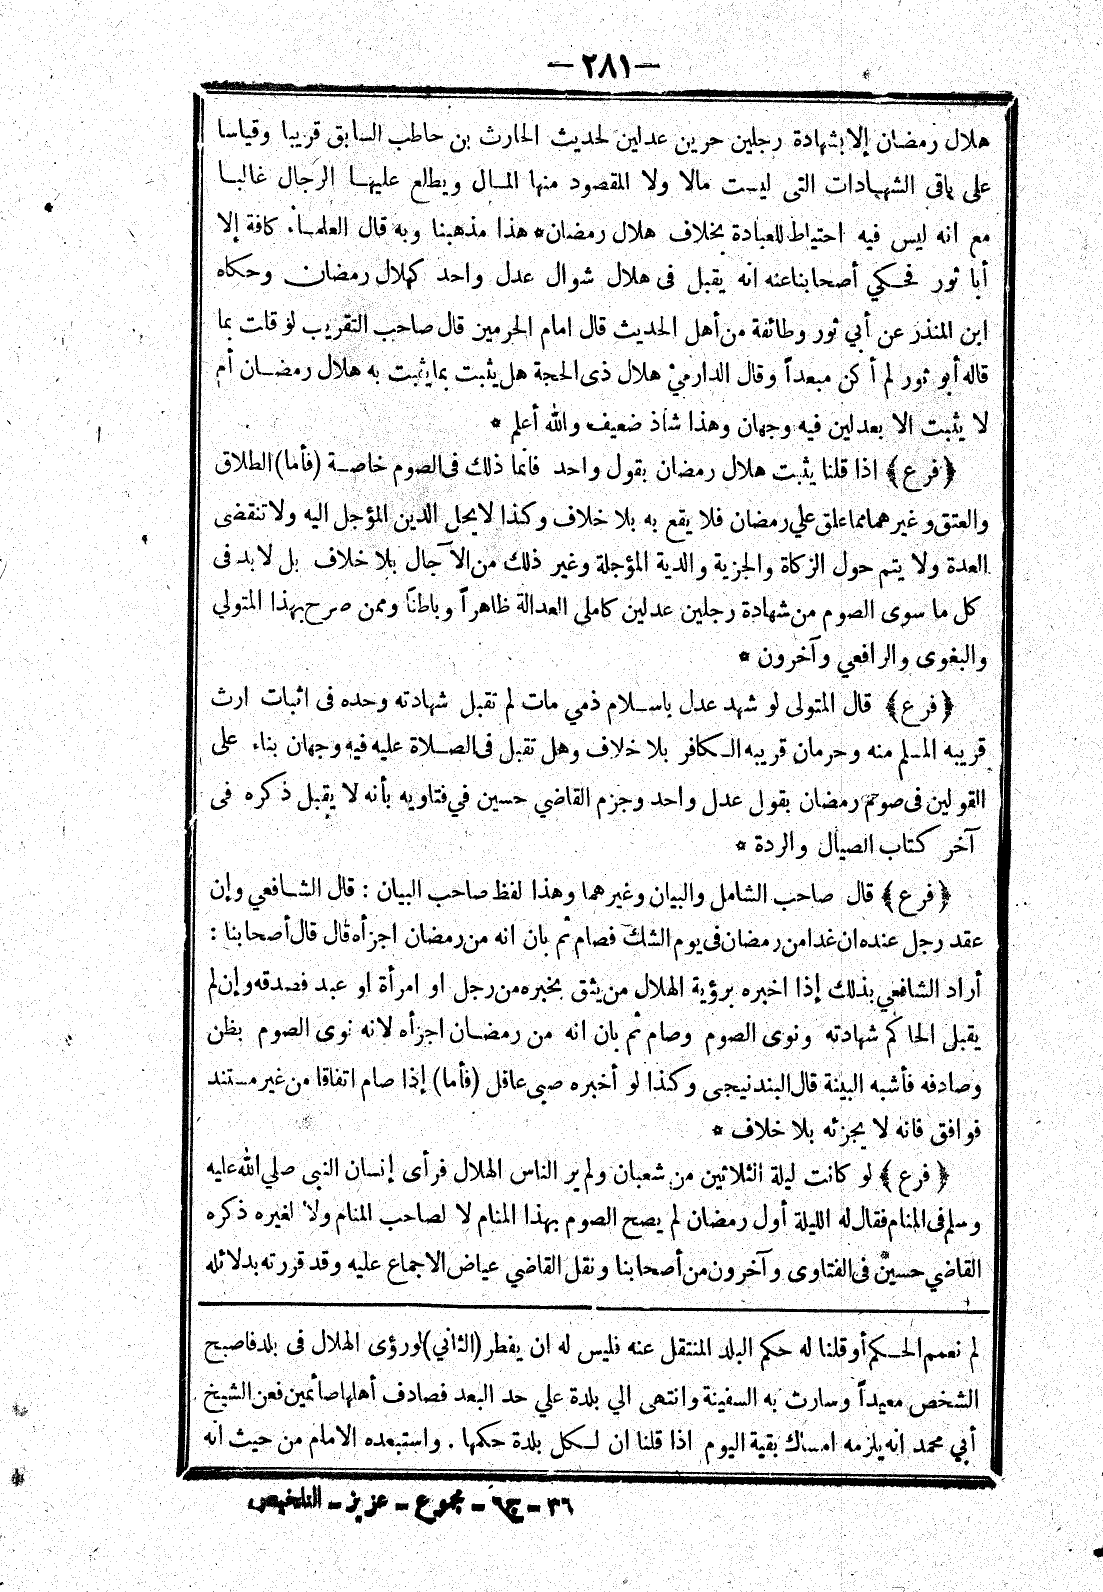 —٢٨١—
هلال رمضان إلا بشهادة رجلين حرين عدلين لحديث الحارث بن حاطب السابق قريبا وقياسا
على باقى الشهادات التى ليست مالا ولا المقصود منها المال ويطلع عليها الرجال غالبا
مع انه ليس فيه احتياط للعبادة بخلاف هلال رمضان * هذا مذهبنا وبه قال العلماء كافة إلا
أبا ثور فحكي أصحابنا عنه انه يقبل فى هلال شوال عدل واحد كهلال رمضان وحكاه
ابن المنذر عن أبي ثور وطائفة من أهل الحديث قال امام الحرمين قال صاحب التقريب لو قلت بما
قاله أبو ثور لم أكن مبعداً وقال الدارمي هلال ذى الحجة هل يثبت بما يثبت به هلال رمضان أم
لا يثبت الا بعدلين فيه وجهان وهذا شاذ ضعيف والله أعلم *
﴿فرع﴾ اذا قلنا يثبت هلال رمضان بقول واحد فانما ذلك فى الصوم خاصة (فأما) الطلاق
والعتق وغيرهما مما علق علي رمضان فلا يقع به بلا خلاف وكذا لا يحل الدين المؤجل اليه ولا تنقضى
العدة ولا يتم حول الزكاة والجزية والدية المؤجلة وغير ذلك من الآجال بلا خلاف بل لا بد فى
كل ما سوى الصوم من شهادة رجلين عدلين كاملى العدالة ظاهراً وباطنا وممن صرح بهذا المتولي
والبغوى والرافعي وآخرون *
﴿فرع﴾ قال المتولى لو شهد عدل باسلام ذمي مات لم تقبل شهادته وحده فى اثبات ارث
قريبه المسلم منه وحرمان قريبه الكافر بلا خلاف وهل تقبل فى الصلاة عليه فيه وجهان بناء على
القولين فى صوم رمضان بقول عدل واحد وجزم القاضي حسين في فتاويه بأنه لا يقبل ذكره فى
آخر كتاب الصيال والردة *
﴿فرع﴾ قال صاحب الشامل والبيان وغيرهما وهذا لفظ صاحب البيان : قال الشافعي وإن
عقد رجل عنده ان غدا من رمضان فى يوم الشك فصام ثم بان انه من رمضان اجزأه قال قال أصحابنا :
أراد الشافعي بذلك إذا اخبره برؤية الهلال من يثق بخبره من رجل او امرأة او عبد فصدقه وإن لم
يقبل الحاكم شهادته ونوى الصوم وصام ثم بان انه من رمضان اجزأه لانه نوى الصوم بظن
وصادفه فأشبه البينة قال البندنيجى وكذا لو أخبره صبى عاقل (فأما) إذا صام اتفاقا من غير مستند
فوافق فانه لا يجزئه بلا خلاف *
﴿فرع﴾ لو كانت ليلة الثلاثين من شعبان ولم ير الناس الهلال فرأى إنسان النبى صلي الله عليه
وسلم فى المنام فقال له الليلة أول رمضان لم يصح الصوم بهذا المنام لا لصاحب المنام ولا لغيره ذكره
القاضي حسين فى الفتاوى وآخرون من أصحابنا ونقل القاضي عياض الاجماع عليه وقد قررته بدلائله
لم نعمم الحكم أو قلنا له حكم البلد المنتقل عنه فليس له ان يفطر (الثاني) لو رؤى الهلال فى بلد فاصبح
الشخص معيداً وسارت به السفينة وانتهى الي بلدة علي حد البعد فصادف أهلها صائمين فعن الشيخ
أبي محمد انه يلزمه امساك بقية اليوم اذا قلنا ان لكل بلدة حكمها . واستبعده الامام من حيث انه
٣٦ – ج٦ – مجموع – عزيز – التلخيص